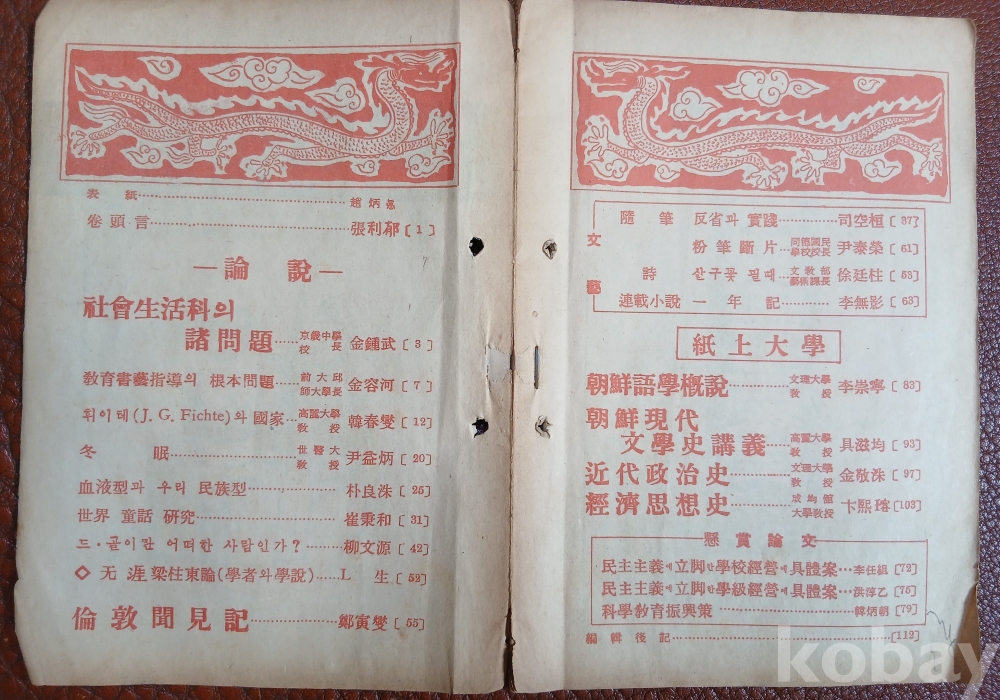 表 紙 趙炳悳
卷頭言 張利郁 [1]
—論 說—
社會生活科의
諸問題 京畿中學校長 金鍾武 [3]
敎育書藝指導의 根本問題 前大邱師大學長 金容河 [7]
휘이데(J. G. Fichte)와 國家 高麗大學敎授 韓春燮 [12]
冬 眠 世醫大敎授 尹益炳 [20]
血液型과 우리 民族型 朴良洙 [25]
世界 童話 硏究 崔秉和 [31]
드·골이란 어떠한 사람인가? 柳文源 [42]
◇ 无涯梁柱東論(學者와 學說) L 生 [52]
倫敦聞見記 鄭寅燮 [55]
文藝
隨 筆 反省과 實踐 司空桓 [37]
粉筆斷片 同德國民學校校長 尹泰榮 [61]
詩 산구꽃 필때 文敎部藝術課長 徐廷柱 [53]
連載小說 一年記 李無影 [63]
紙上大學
朝鮮語學槪說 文理大學敎授 李崇寧 [83]
朝鮮現代
文學史講義 高麗大學敎授 具滋均 [93]
近代政治史 文理大學敎授 金敬洙 [97]
經濟思想史 成均館大學敎授 卞熙瑢 [103]
懸賞論文
民主主義에 立脚한 學校經營에 具體案 李任組 [72]
民主主義에 立脚한 學級經營에 具體案 洪淳乙 [75]
科學敎育振興策 韓炳朝 [79]
編輯後記 [112]
kobay